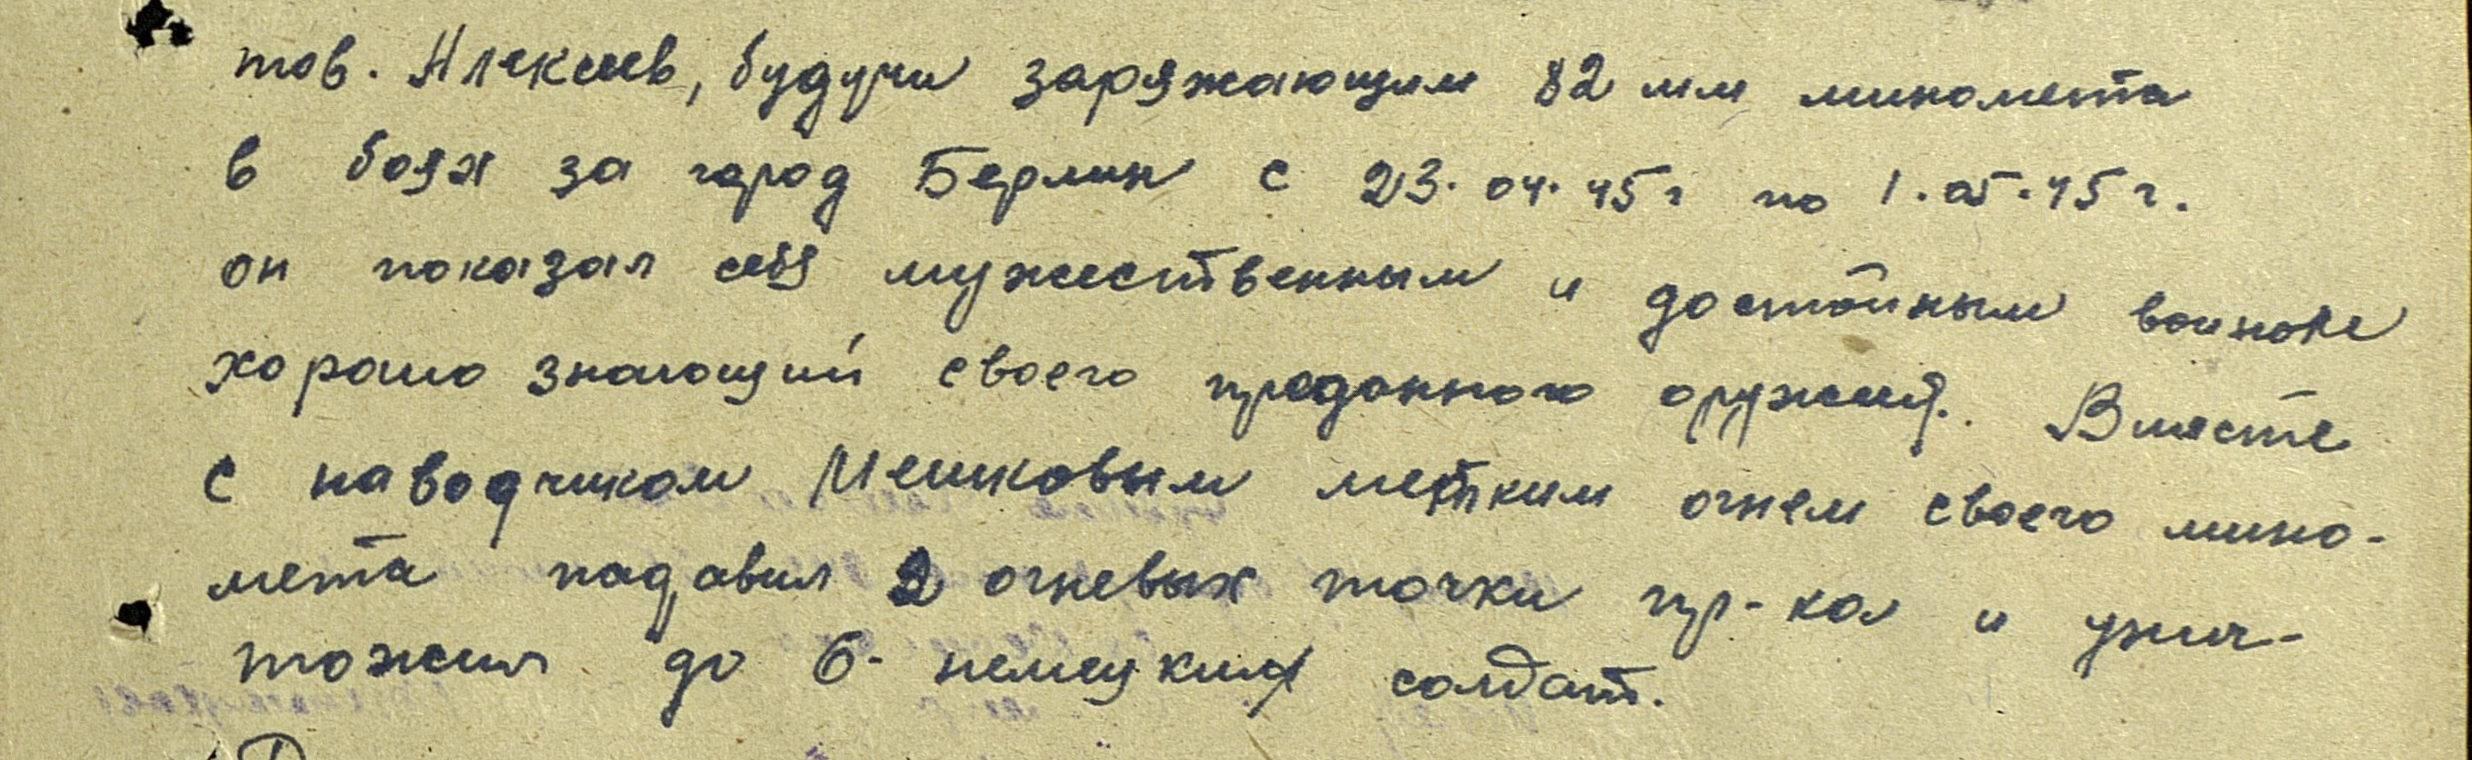 тов. Алексеев, будучи заряжающим 82 мм миномета
в боях за город Берлин с 23.04.45г по 1.05.45г.
он показал себя мужественным и достойным воином
хорошо знающий своего преданного оружия. Вместе
с наводчиком Мешковым метким огнем своего мино-
мета подавил 2 огневых точки пр-ка и унич-
тожил до 6- немецких солдат.